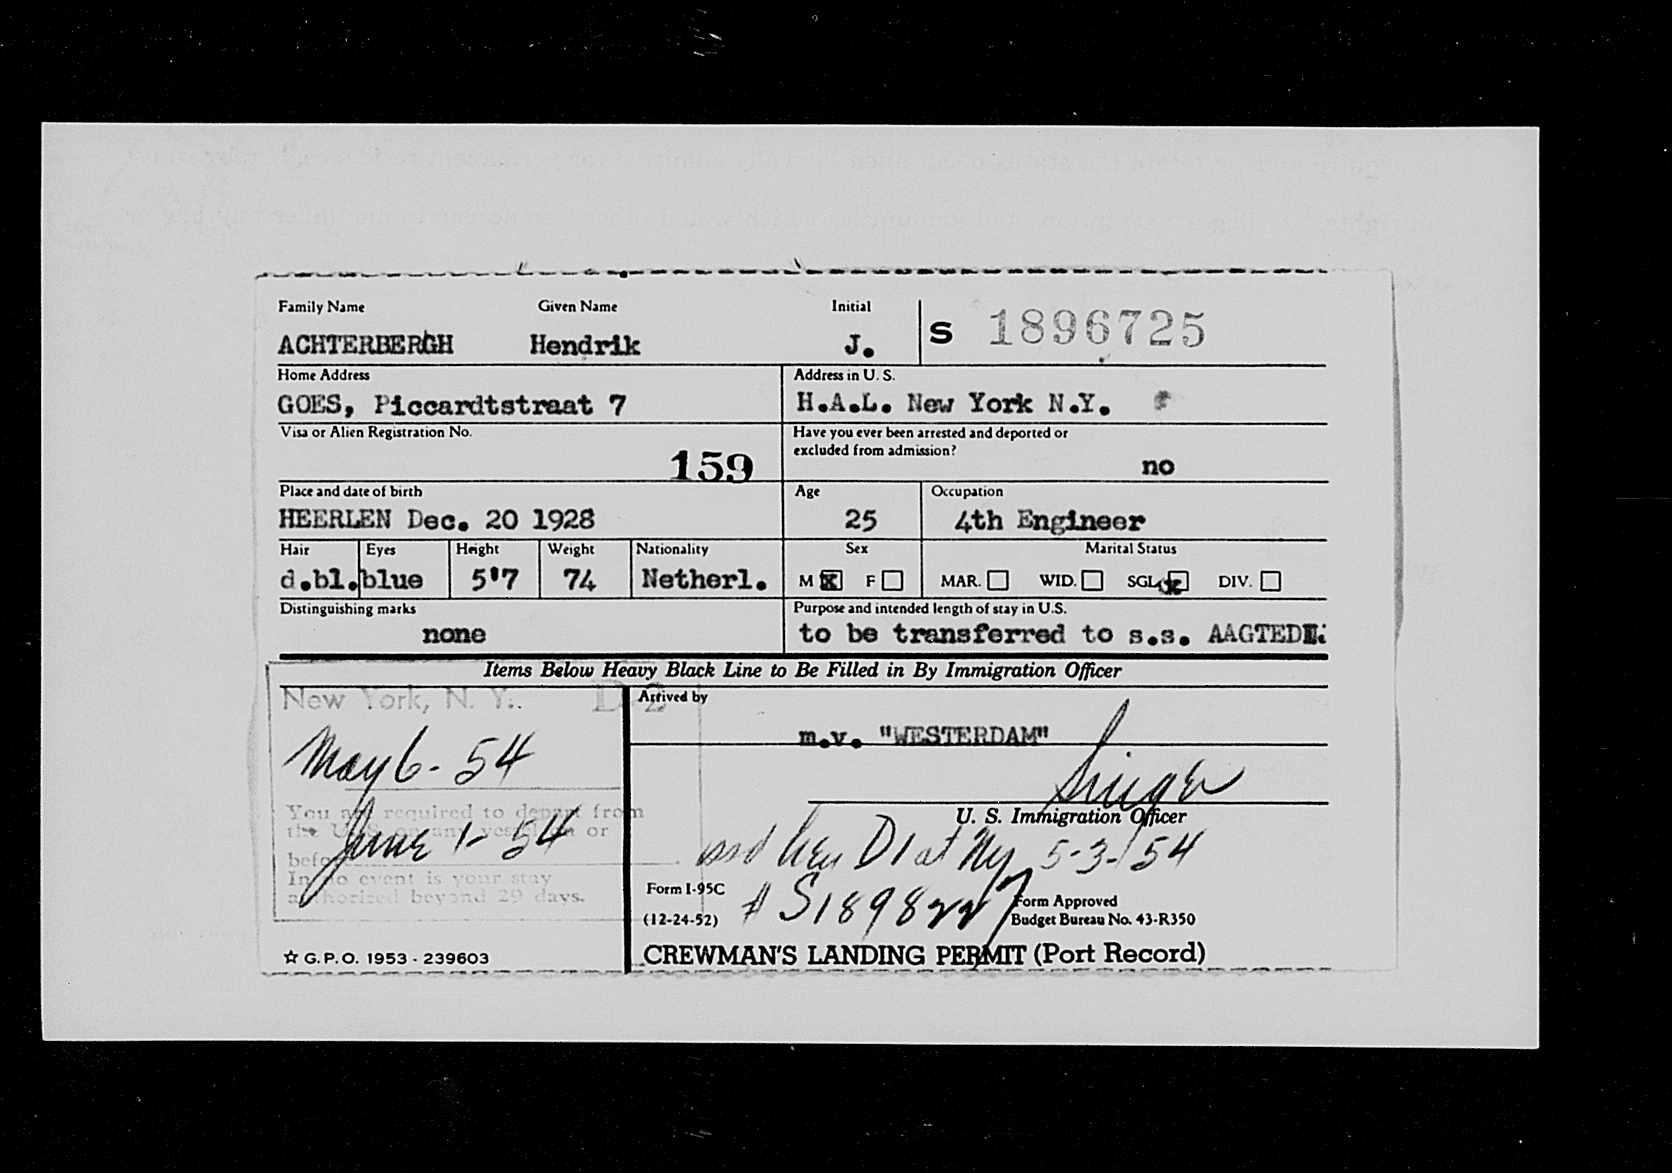 Family Name Given Name Initial
ACHTERBERGH Hendrik J. S 1896725
Home Address Address in U. S.
GOES, Piccardtstraat 7 H.A.L. New York N.Y.
Visa or Alien Registration No. Have you ever been arrested and deported or
excluded from admission?
159 no
Place and date of birth Age Occupation
HEERLEN Dec. 20 1928 25 4th Engineer
Hair Eyes Height Weight Nationality Sex Marital Status
d.bl. blue 5'7 74 Netherl. M X F MAR. WID. SGL. X DIV.
Distinguishing marks Purpose and intended length of stay in U.S.
none to be transferred to s.s. AAGTEDK.
Items Below Heavy Black Line to Be Filled in By Immigration Officer
New York, N. Y. D-2 Arrived by
m.v. "WESTERDAM"
May 6 - 54
U. S. Immigration Officer
You are required to depart from
the U.S. on any vessel on or
June 1 - 54
before
In no event is your stay
authorized beyond 29 days.
D1 at NY 5-3-54
# S1898227
Form I-95C Form Approved
(12-24-52) Budget Bureau No. 43-R350
☆ G.P.O. 1953 - 239603 CREWMAN'S LANDING PERMIT (Port Record)